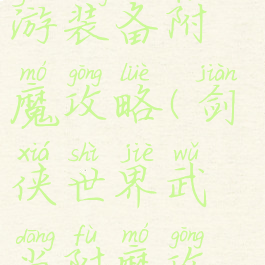 游装备附
mó gōng lüè jiàn
魔攻略(剑
xiá shì jiè wǔ
侠世界武
dāng fù mó gōng
当附魔攻